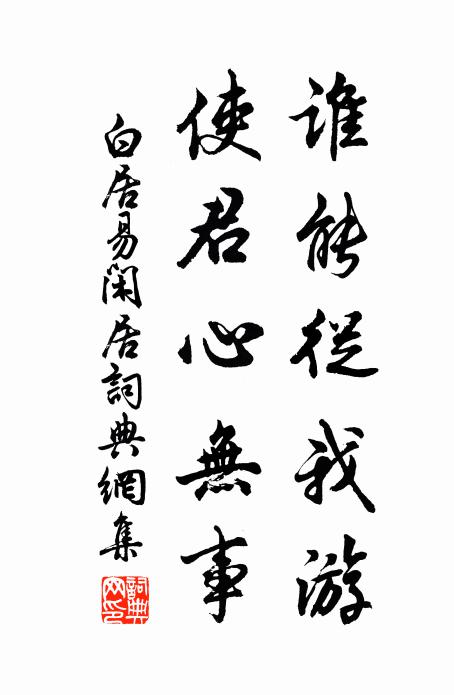 誰能從我游
使君心無事
白居易閑居詞典網集
詞典網印